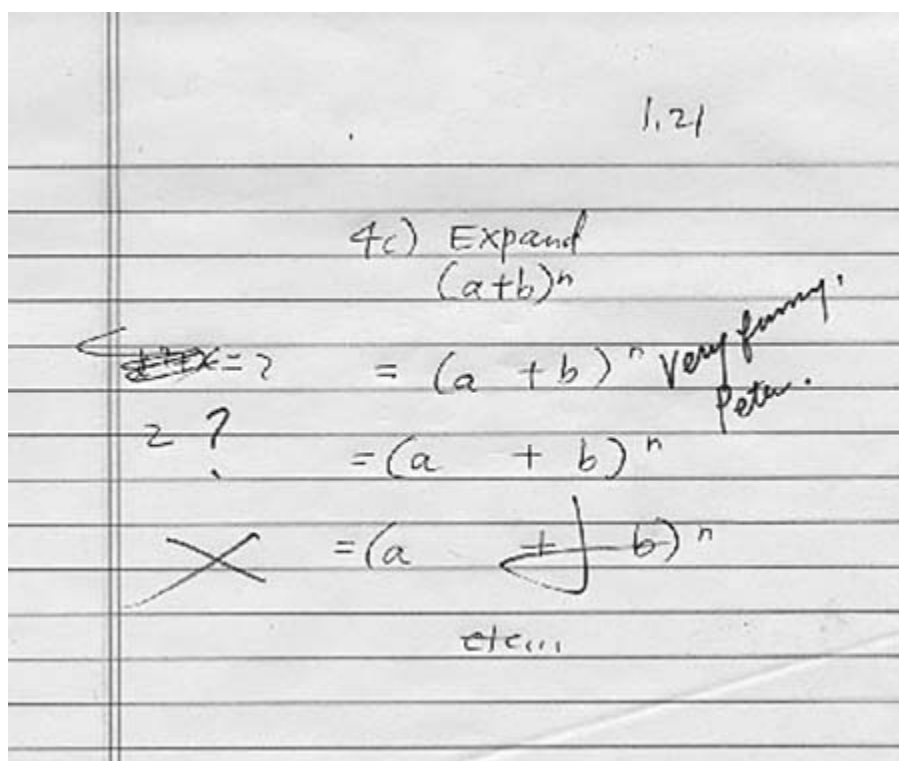 1.21
4c) Expand
(a+b)ⁿ
= (a + b)ⁿ Very funny, Peter.
= 2
2 ?
= (a + b)ⁿ
= (a + b)ⁿ
etc...